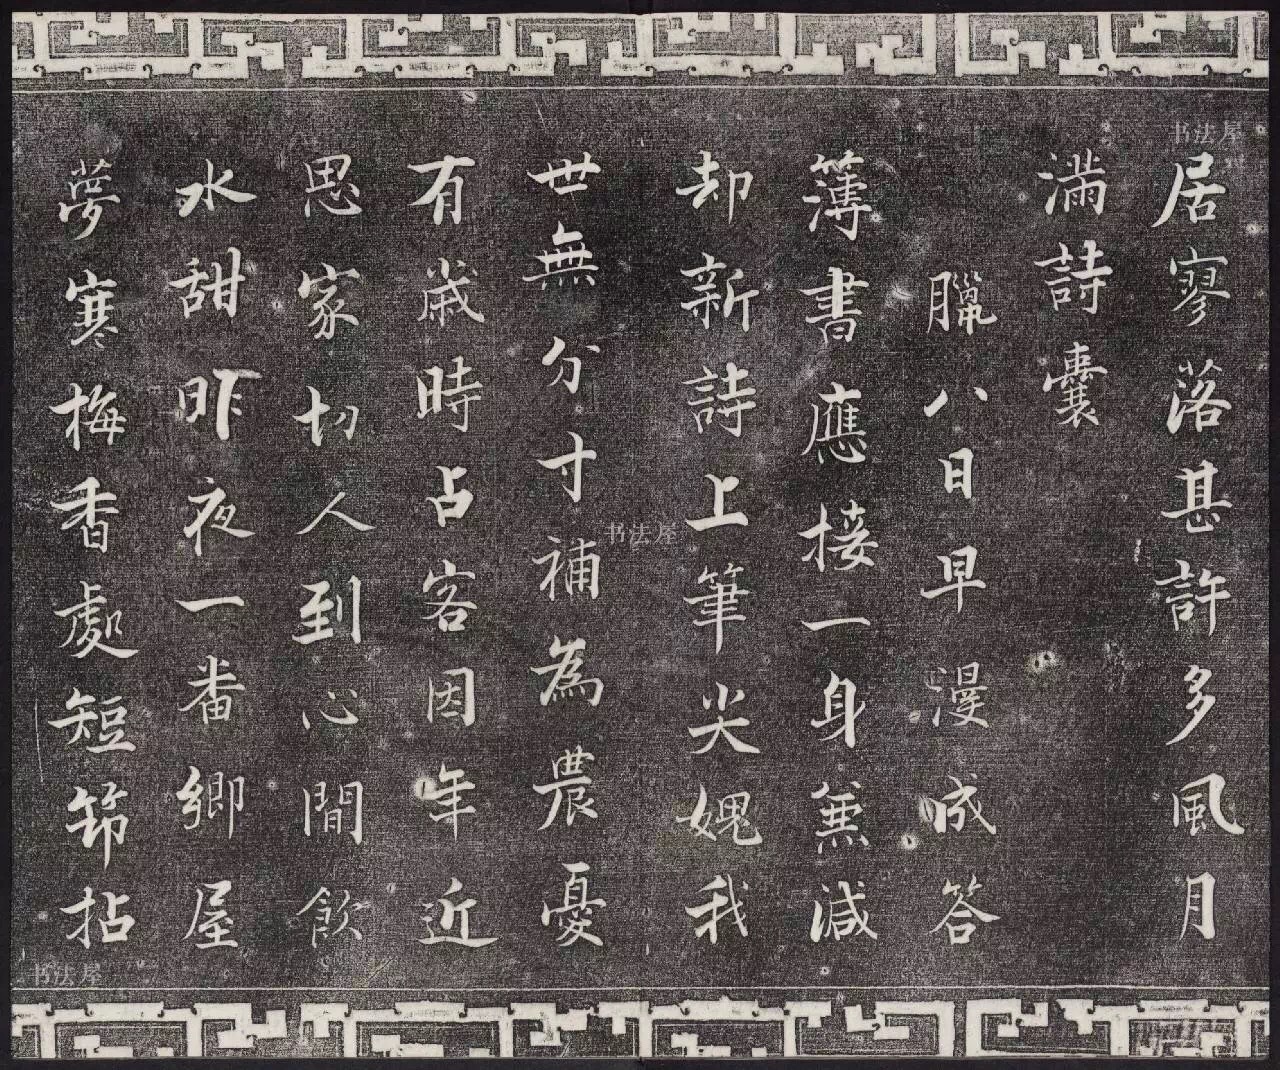 居寥落甚許多風月
滿詩囊
臘八日早漫成答
簿書應接一身兼減
却新詩上筆尖媿我
世無分寸補為農憂
有歲時占客因年近
思家切人到心閒飲
水甜昨夜一番鄉屋
夢寒梅香處短節拈
书法屋
书法屋
书法屋